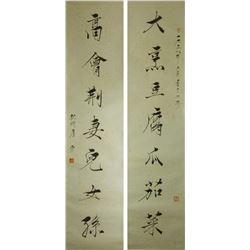 大烹豆腐瓜茄菜
高會荊妻兒女孫